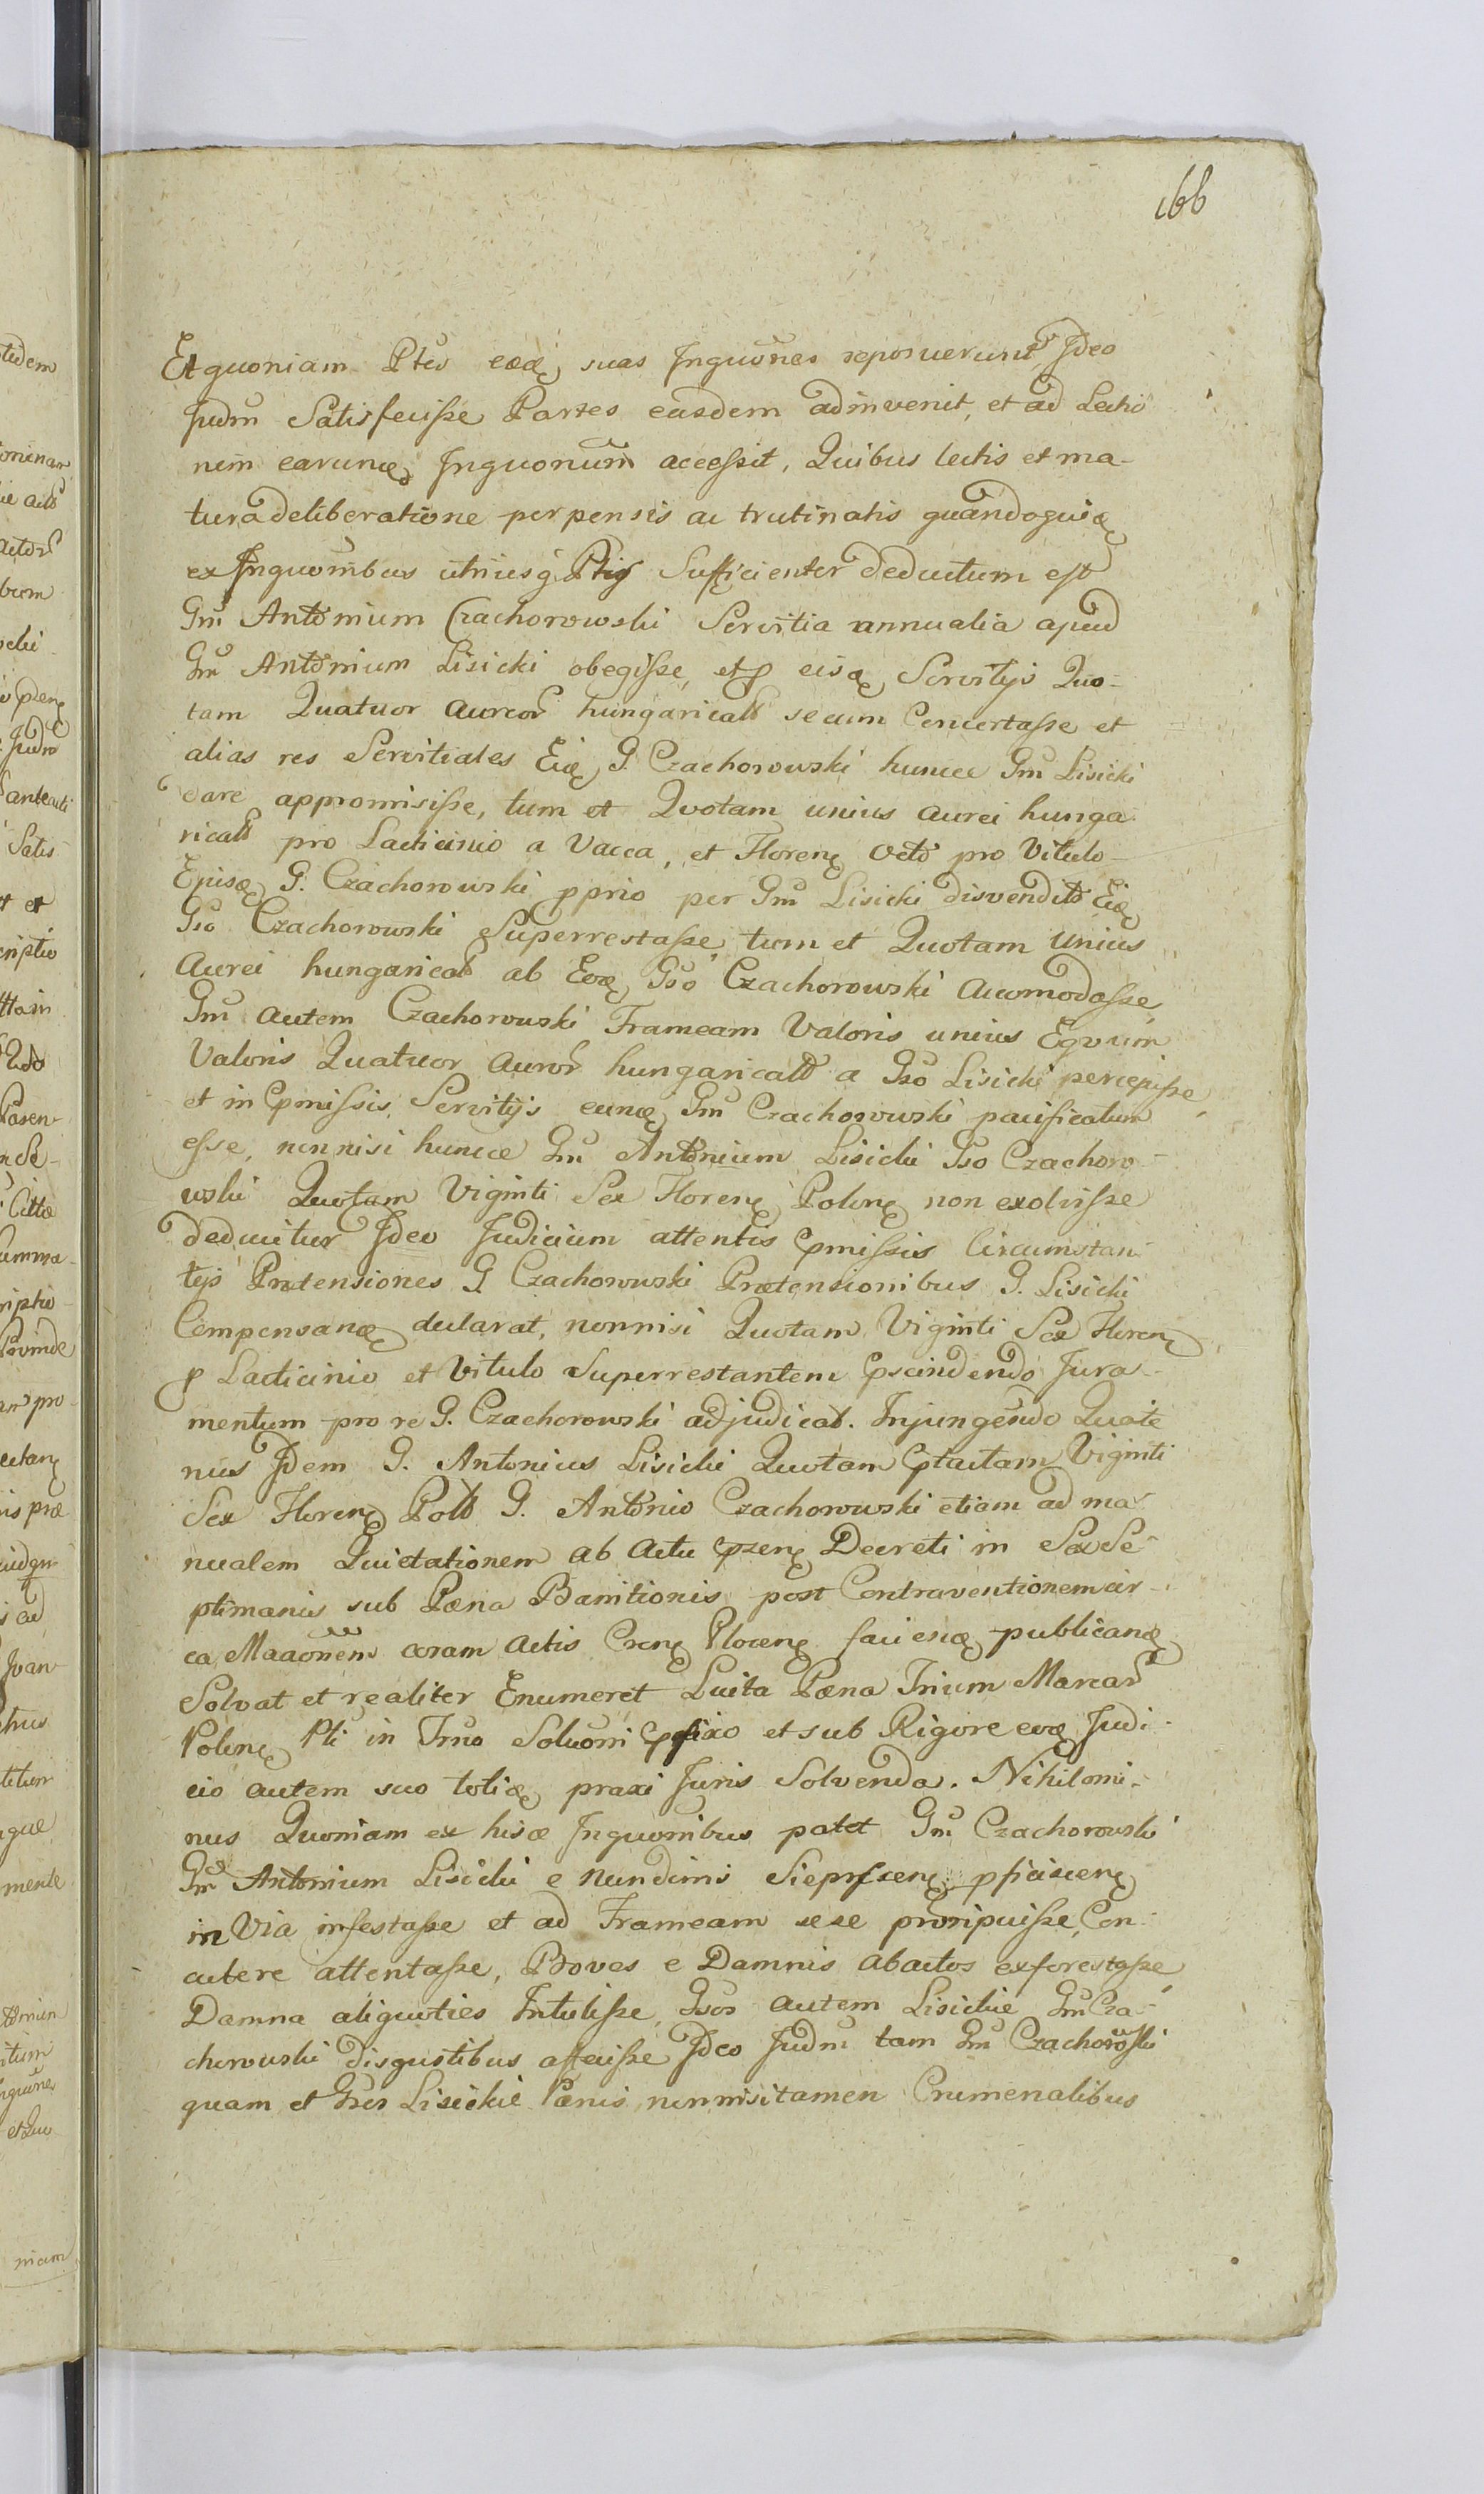 166
Et quoniam Ptes eaedꝫ suas Inquones reposuerunt Ideo
Judm Satisfecisse Partes easdem adinvenit, et ad Lectio
nem earundꝫ Inquonum accessit, Quibus lectis et ma-
tura deliberatione perpensis ac trutinatis quandoquidꝫ
ex Inquonibus utriusq Ptis Sufficienter deductum est
Gm Antonium Czachorowski Servitia annualia apud
Gm Antonium Lisicki obegisse, et p eisdꝫ Servitijs Quo-
tam Quatuor Aureor hungaricalt secum Concertasse et
alias res Servitiales Eidꝫ G. Czachorowski huncce Gm Lisicki
dare appromisisse, tum et Quotam unius Aurei hunga
ricalt pro Lacticinio a Vacca, et Florenꝫ Octo pro Vitulo
Ejusdꝫ G. Czachorowski pprio per Gm Lisicki disvendito Eidꝫ
Gso Czachorowski Superrestasse, tum et Quotam Unius
Aurei hungarical ab Eodꝫ Gso Czachorowski Accomodasse
Gm autem Czachorowski Frameam Valoris unius Equum
Valoris Quatuor Auror hungaricalt a Gso Lisicki percepisse,
et in pmissis Servitijs eundꝫ Gm Czachorowski pacificatum
esse, nonnisi huncce Gm Antonium Lisicki Gso Czachoro-
wski Quotam Viginti Sex Florenꝫ Polonꝫ non exolvisse
deducitur Ideo Judicium attentis pmissis Circumstan
tijs Prætensiones G Czachorowski Prætensionibus G. Lisicki
Compensandꝫ declarat, nonnisi Quotam Viginti Sex Florenꝫ
p Lacticinio et Vitulo Superrestantem pscindendo Jura-
mentum pro re G. Czachorowski adjudicat. Injungendo Quate
nus Idem G. Antonius Lisicki Quotam ptactam Viginti
Sex Florenꝫ Polt G. Antonio Czachorowski etiam ad ma
nualem Quietationem ab Actu pzenꝫ Decreti in Sex Se
ptimanis sub Pæna Banitionis post Contraventionem cir-
ca Maaonem coram Actis Crenꝫ Plocenꝫ faciendꝫ publicandꝫ
Solvat et realiter Enumeret Luita Pæna Trium Marcar
Polonꝫ Pti in Trno Soluoni pfixo et sub Rigore eodꝫ Judi-
cio autem suo totidꝫ praxi Juris Solvenda. Nihilomi-
nus Quoniam ex hisce Inquonibus patet Gm Czachorowski
Gm Antonium Lisicki e Nundinis Sieprscenꝫ pficiscenꝫ
in Via infestasse et ad Frameam sese proripuisse, Con-
cutere attentasse, Boves e Damnis abactos exforestasse,
Damna aliquoties Intulisse, Gsos autem Lisickie Gm Cza-
chorowski disgustibus affecisse Ideo Judm tam Gm Czachorowski
quam et Gsos Lisickie Pænis nonnisi tamen Crimenalibus